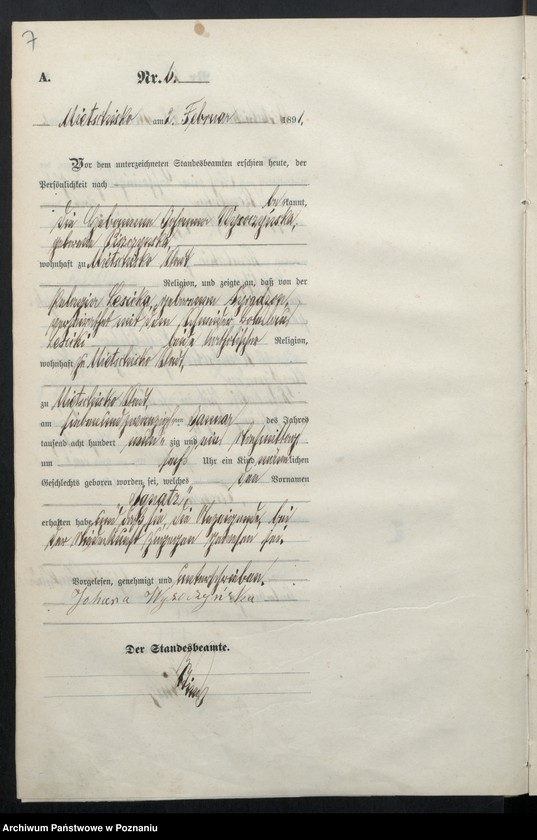 7
A. Nr. 6.
Mietschisko am 2. Februar 1891.
Vor dem unterzeichneten Standesbeamten erschien heute, der
Persönlichkeit nach
be kannt,
die Hebamme Johanna Wyroczyńska,
geborene
wohnhaft zu Mietschisko Stadt
Religion, und zeigte an, daß von der
Pelagia Lesicka, geborenen
verehelicht mit dem
Lesicki beide katholischer Religion,
wohnhaft zu Mietschisko Stadt,
zu Mietschisko Stadt,
am sieben und zwanzigsten Januar des Jahres
tausend acht hundert neun zig und ein Nachmittag
um sechs Uhr ein Kind männlichen
Geschlechts geboren worden sei, welches den Vornamen
Ignatz
erhalten habe und daß sie, die Anzeigende, bei
der Niederkunft zugegen gewesen sei.
Vorgelesen, genehmigt und unterschrieben.
Johana Wyroczyńska
Der Standesbeamte.
Archiwum Państwowe w Poznaniu